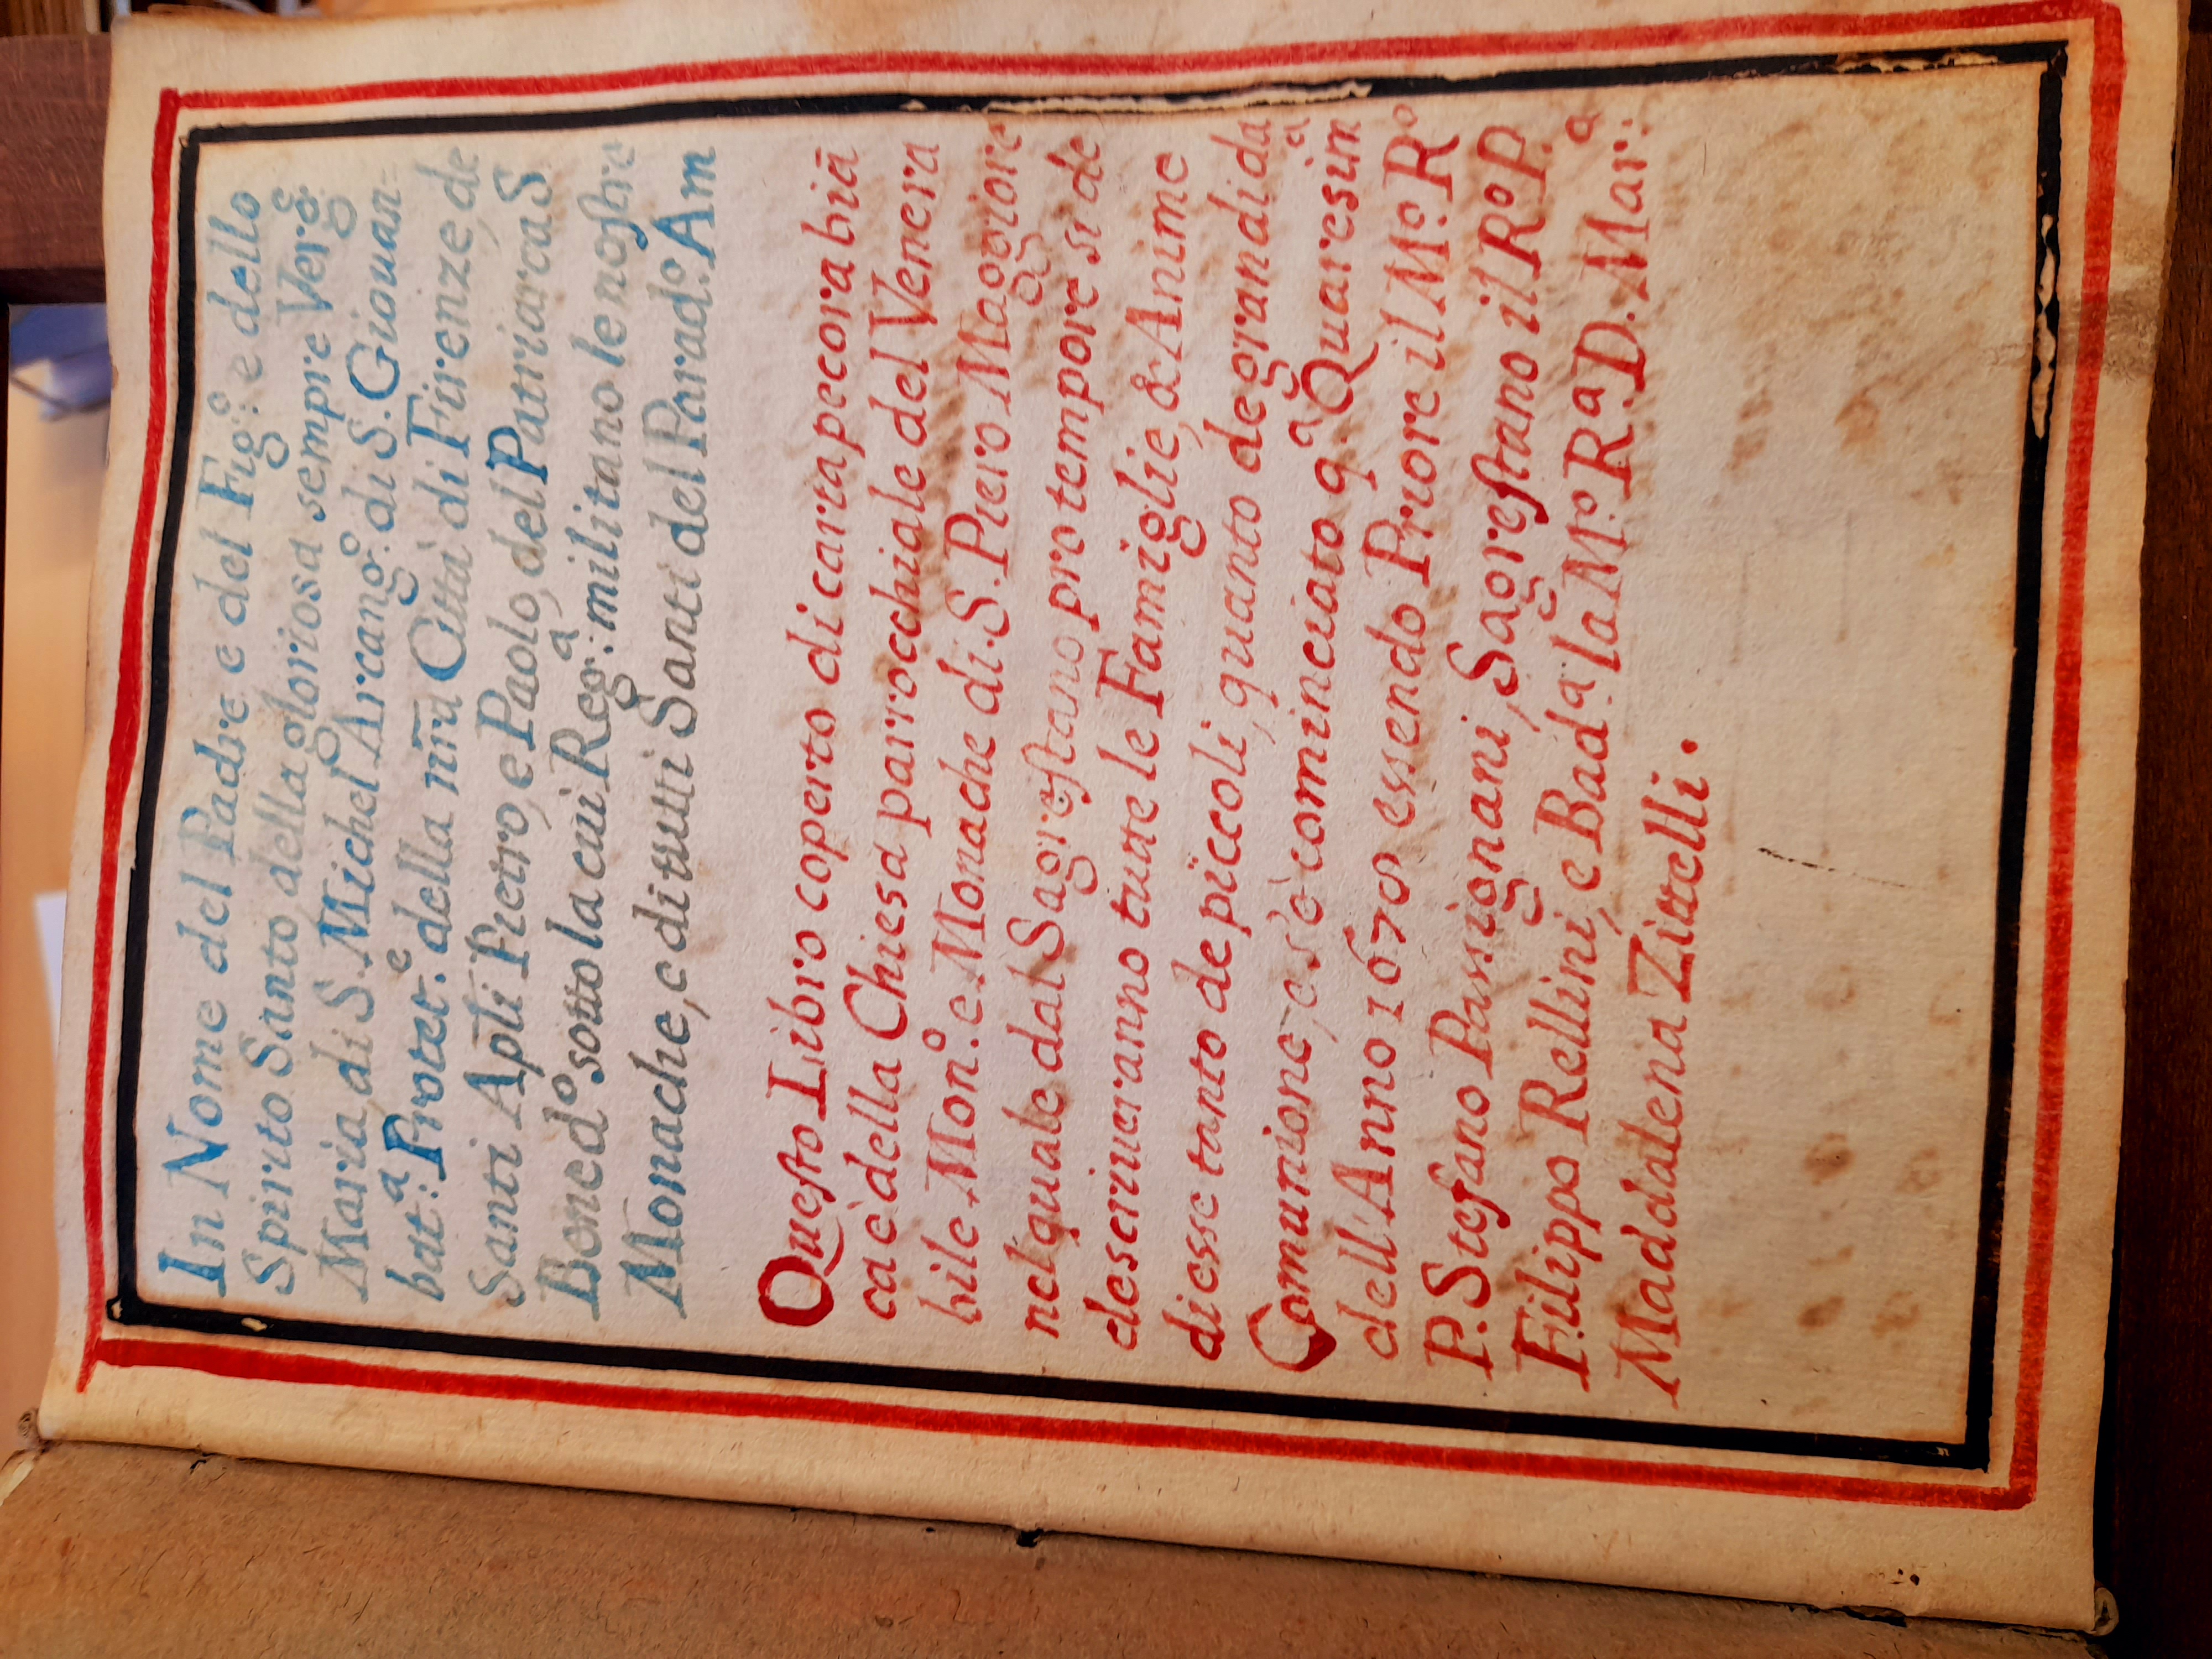 In Nome del Padre e del Fig.º: e dello
Spirito Santo della gloriosa sempre Verg.ᵉ
Maria, di S. Michel'Arcang.º: di S. Giouan=
bat.ᵃ: Protet.ᵉ: della nr̄a Città di Firenze, de
Santi Ap̄li Pietro, e Paolo, del Patriarca S
Bened.º sotto la cui Reg.ᵃ: militano le nostre
Monache, e di tutti i Santi del Parad.º: Am
Questo Libro coperto di cartapecora biā
ca è della Chiesa parrocchiale del Venera
bile Mon.º: e Monache di S. Piero Maggiore
nel quale dal Sagrestano pro tempore si de
descriueranno tutte le Famiglie, & Anime
di esse tanto de piccoli, quanto de grandi da
Comunione, e s'è cominciato q.ᵃ Quaresimᵃ
dell'Anno 1670 essendo Priore il M.º R.º
P. Stefano Passignani, Sagrestano il R.º P.
Filippo Rellini, e Bad.ᵃ: la M.º R.ᵃ D. Mar.ᵃ:
Maddalena Zittelli.